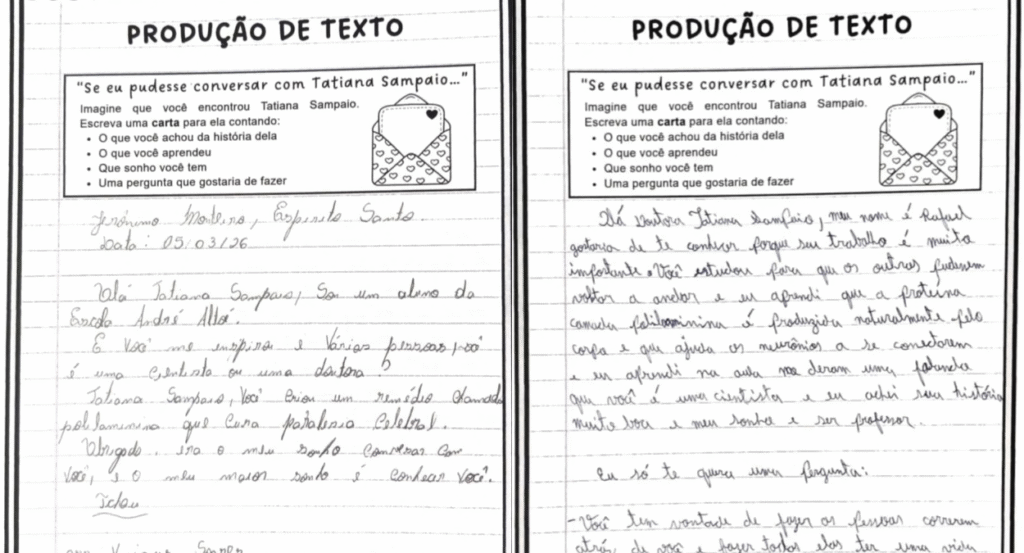 PRODUÇÃO DE TEXTO
"Se eu pudesse conversar com Tatiana Sampaio..."
Imagine que você encontrou Tatiana Sampaio.
Escreva uma carta para ela contando:
• O que você achou da história dela
• O que você aprendeu
• Que sonho você tem
• Uma pergunta que gostaria de fazer
Jerônimo Monteiro, Espirito Santo.
Data: 05/03/26
Olá Tatiana Sampaio, Sou um aluno da
Escola André Altoé.
E Você me inspira e Várias pessoas,
é uma Cientista ou uma doutora?
Tatiana Sampaio, Você Criou um remédio chamado
polilaminina que Cura paralesia Celebral.
Obrigado. era o meu sonho Conversar Com
Você, e o meu maior sonho é Conhecer Você.
Tchau
PRODUÇÃO DE TEXTO
"Se eu pudesse conversar com Tatiana Sampaio..."
Imagine que você encontrou Tatiana Sampaio.
Escreva uma carta para ela contando:
• O que você achou da história dela
• O que você aprendeu
• Que sonho você tem
• Uma pergunta que gostaria de fazer
Olá Doutora Tatiana Sampaio, meu nome é Rafael
gostaria de te conhecer porque seu trabalho é muito
importante. Você estudou para que os outros pudessem
voltar a andar e eu aprendi que a proteína
chamada polilaminina é produzida naturalmente pelo
corpo e que ajuda os neurônios a se conectarem
e eu aprendi na aula deram uma
que você é uma cientista e eu achei sua história
muito boa e meu sonho e ser professor.
Eu só te quero uma pergunta:
-Você tem vontade de fazer as pessoas correrem
atrás de você e fazer todos elas ter uma vida